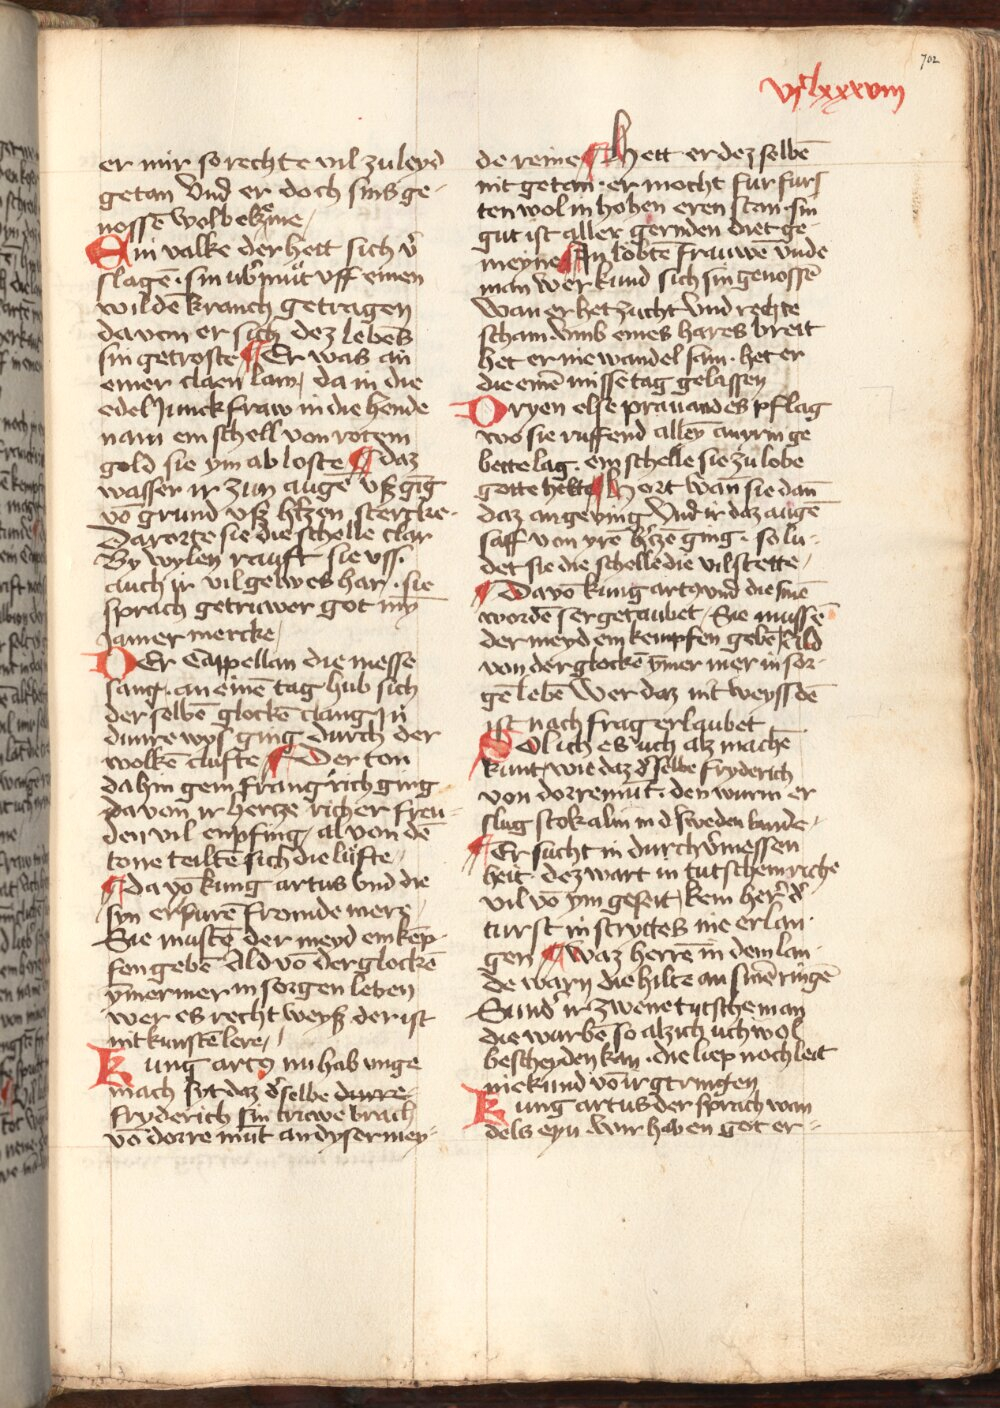 702
vjᶜlxxxviii
er mir so rechte vil zu leyd
getan Vnd er doch sins ge-
nossē wol bekēme /
Ein valke der hett sich v̓
slagē · sin ub̓mut vff einen
wildē kranch getragen
da von er sich dez lebēs
sin getroste ¶ Er was an
einer claen lam / da in die
edel Junckfraw in die hende
nam ein schell von rotem
gold sie ym ab loste ¶ daz
wasser ir zun augē vß gīg
vō grund vß h̓tzen stercke ·
Dar orte sie die schelle clar
By wylen rauft sie vss ·
auch ir vil gelwes har · sie
sprach getruwer got my̅
Jamer mercke /
DEr Cappellan die messe
sang · an einē tag hub sich
der selbē glockē clang In
dunre wyß ging durch der
wolkē clufte ¶ Der ton
da hin gein franck̓rich ging
da von ir hertze richer freu-
den vil enpfing / al von dē
tone teiltē sich die lüfte /
¶ da vō kung artus vnd die
syn erfurē fremde mere
Sie mustē der meyd ein kēp-
fen gebē Ald vō der glockē
ymer mer in sorgen leben
wer es recht weyß der ist
nit kunstē lere /
Kung artus nu hab vnge
mach syt daz d̓ selbe durre
fryderich sin triwe brach
vō dorre mut an dyser mey-
de reine ¶ Hett er dez selbē
nit getan · er mocht fur furs
ten wol in hohen eren stan · sin
gut ist aller gernden diet ge-
meyne ¶ An lobtē frauwē vnde
man wer kund sich sin genossē
Wan er het zucht vnd rechte
scham · vmb eines hares breit
het er nie wandel sam · het er
die einē missetag gelassen
Dryen else prauandes pflag
wo sie ruffend alley̅ an yrm ge
bette lag · ein schelle sie zu lobe
gotte hēkte ¶ Hort wan sie dan̄
daz an geving Vnd ir daz augē
saff von yrē h̓tze ging · so lu-
det sie die schelle die vil stette /
¶ Da vō kung artus vnd die sinē
wordē ser getaubet / Sie mussē
der meyd ein kempfen gebē Ald
von der glockē ymer mer in sor-
gē lebē Wer daz nit weyss dē
ist nach frag erlaubet
Sol ich es uch alz machē
kunt / wie daz d̓ selbe fryderich
von dorremut · den wurm er
slug stokalm in d̓ sweden bunde /
¶ Er sucht in durch v̓messen
heit · dez wart in tutschem riche
vil vō ym geseit / kein her̓ d̓
turst in strytes nie erlan-
gen ¶ Waz herrē in dem lan-
de warn die hilte an sinē ringē
Sund̓ ir zwene tutsche man
die wurbē so alz ich uch wol
bescheyden kan · die liep noch leit
nie kund vō ir gtringen
Kung artus der sprach wan
dels eyn wir haben got er-